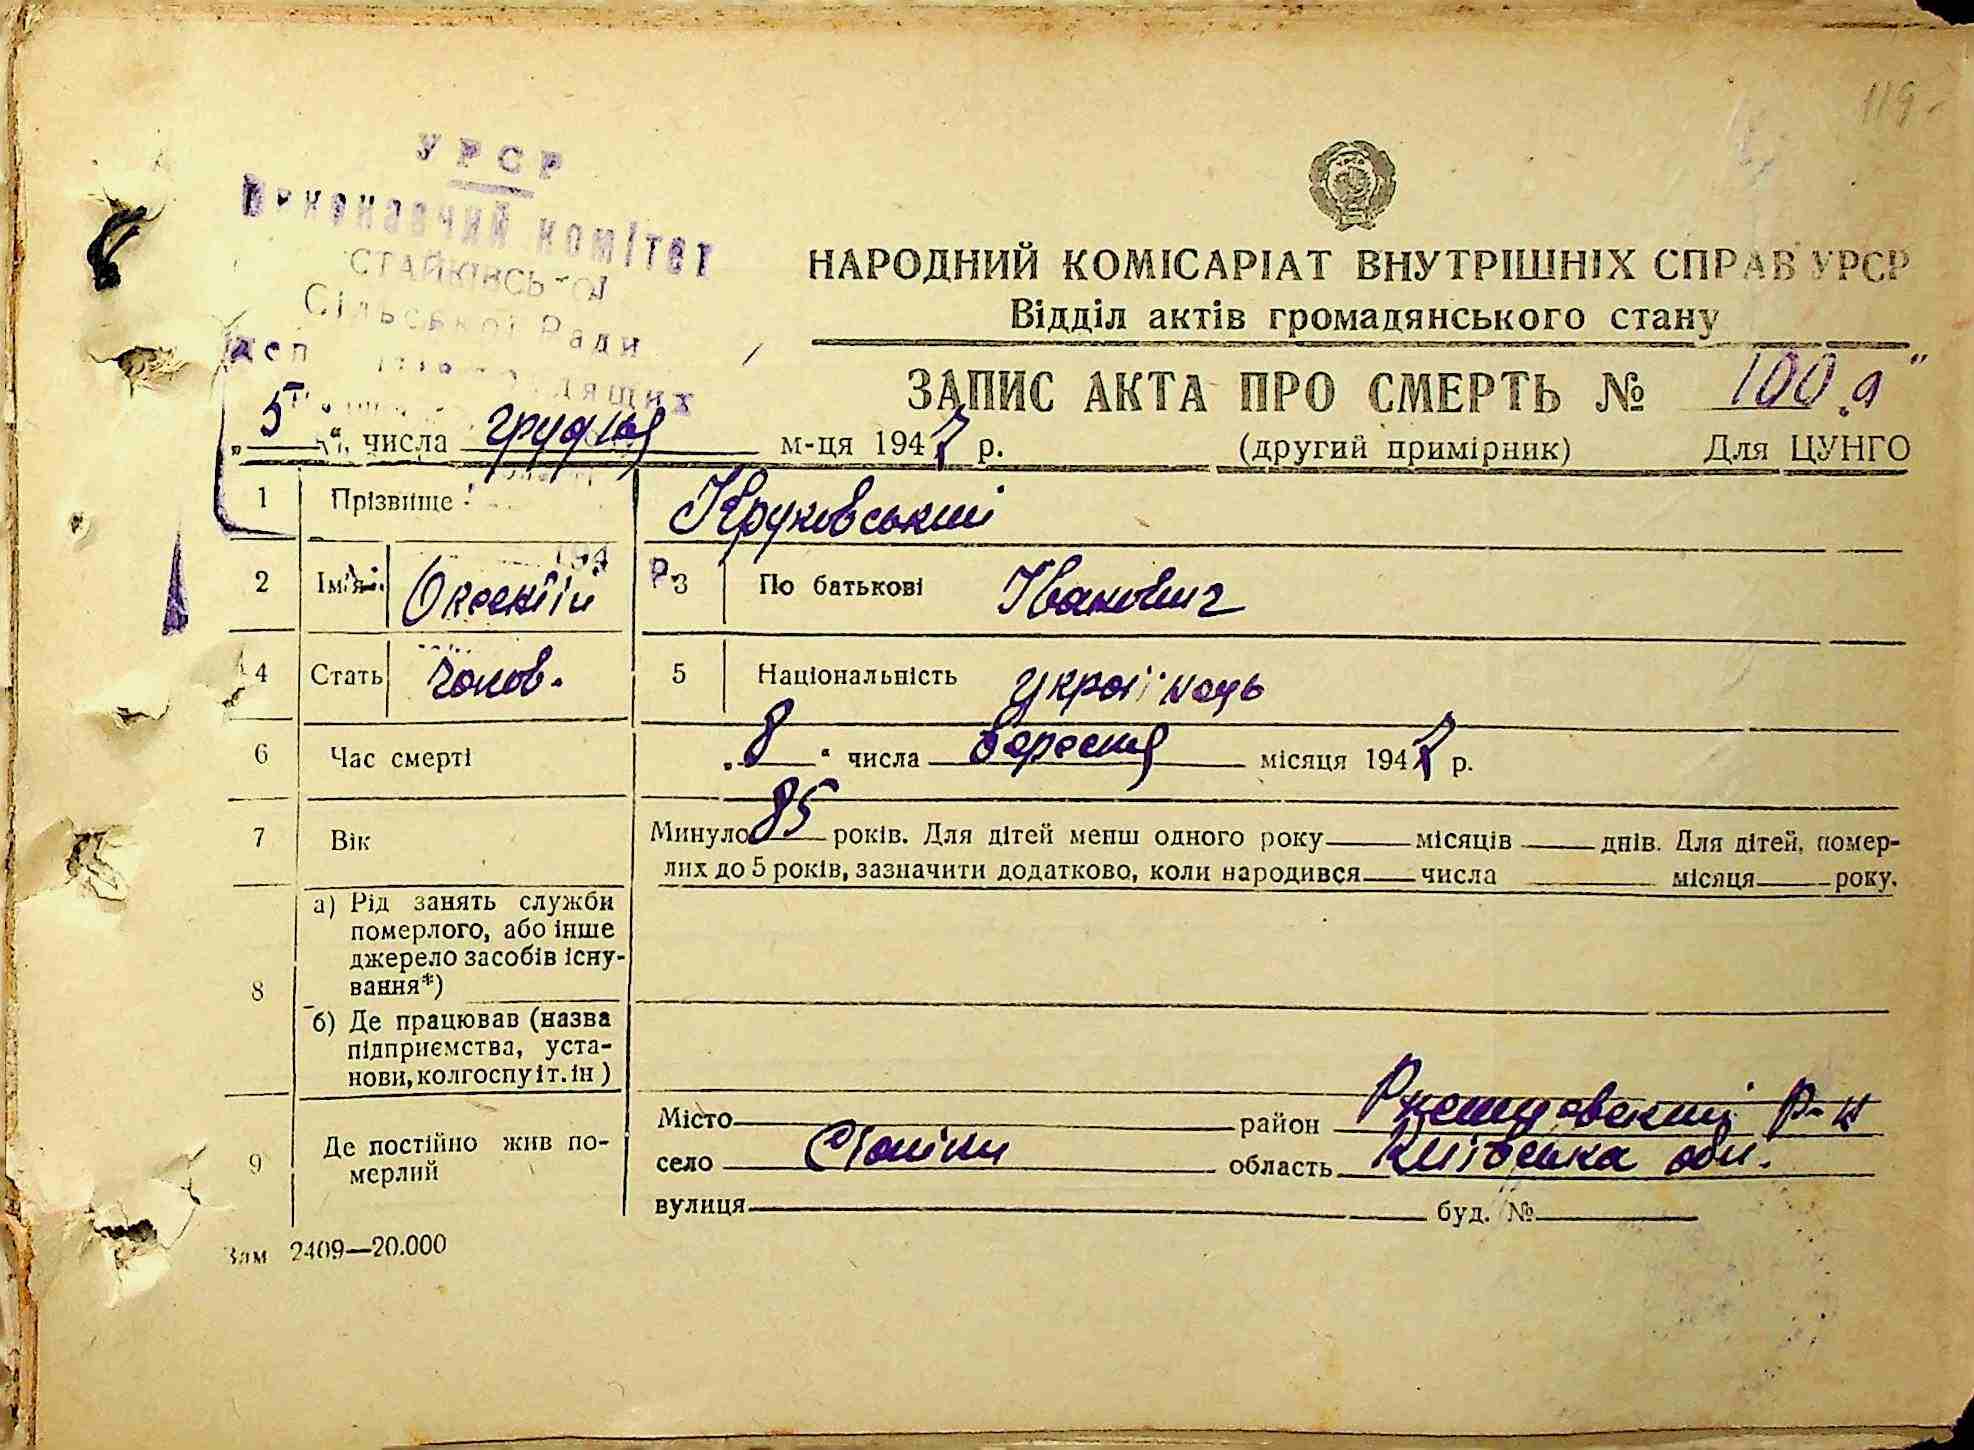 119
УРСР
Виконавчий комітет
СТАЙКІВСЬКОЇ
Сільської Ради
НАРОДНИЙ КОМІСАРІАТ ВНУТРІШНІХ СПРАВ УРСР
Відділ актів громадянського стану
ЗАПИС АКТА ПРО СМЕРТЬ № 100 "а"
„5" числа грудня м-ця 1947 р. (другий примірник) Для ЦУНГО
1 Прізвище Круковський
2 Ім'я Олексій 3 По батькові Іванович
4 Стать чолов. 5 Національність українець
6 Час смерті „8" числа вересня місяця 1947 р.
7 Вік Минуло 85 років. Для дітей менш одного року місяців днів. Для дітей, помер-
лих до 5 років, зазначити додатково, коли народився числа місяця року.
8 а) Рід занять служби
померлого, або інше
джерело засобів існу-
вання*)
б) Де працював (назва
підприємства, уста-
нови, колгоспу і т. ін)
9 Де постійно жив по-
мерлий
Місто район Ржищевський р-н
село Стайки область Київська обл.
вулиця буд. №
Зам 2409—20.000